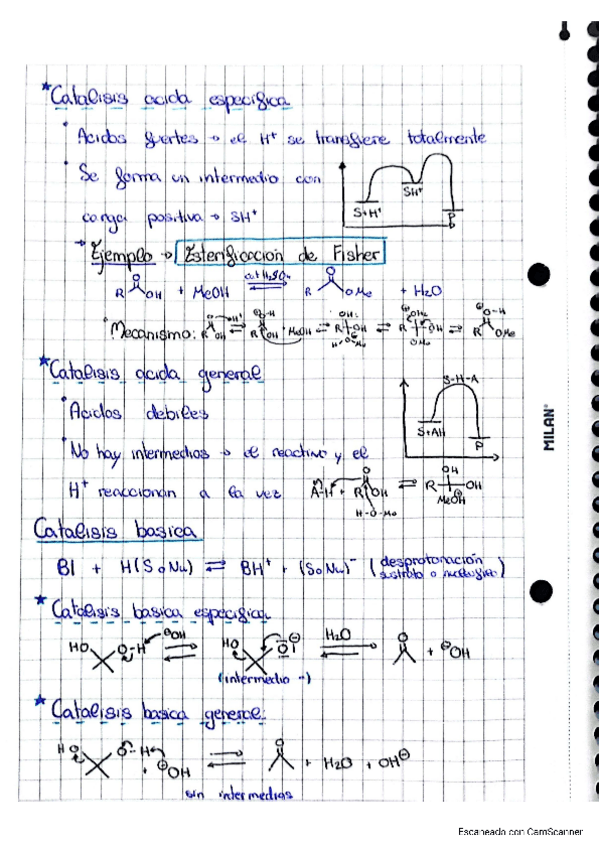 *Catalisis acida especifica
Acidos fuertes → el H⁺ se transfiere totalmente
Se forma un intermedio con
carga positiva → SH⁺
S+H⁺ SH⁺ P
→ Ejemplo → Esterificación de Fisher
R OH + MeOH cat H₂SO₄ R OMe + H₂O
Mecanismo:
*Catalisis acida general
Acidos debiles
S-H-A
S+AH P
MILAN
No hay intermedios → el reactivo y el
H⁺ reaccionan a la vez A-H + R OH
H-O-Me
OH R OH MeOH
Catalisis basica
Bl + H(S o Nu) ⇌ BH⁺ + (S o Nu)⁻ (desprotonación
sustrato o
* Catalisis basica especifica
HO O-H ⊖OH HO O⊖ H₂O O + ⊖OH
(intermedio -)
* Catalisis basica general:
HO O-H + ⊖OH O + H₂O + OH⊖
sin intermedios
Escaneado con CamScanner